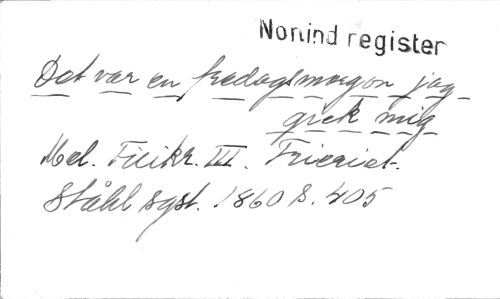 Norrlnd register
Det var en fredagsmorgon jag
gick mig
Mel. III.
Ståhl sgst. 1860 S. 405